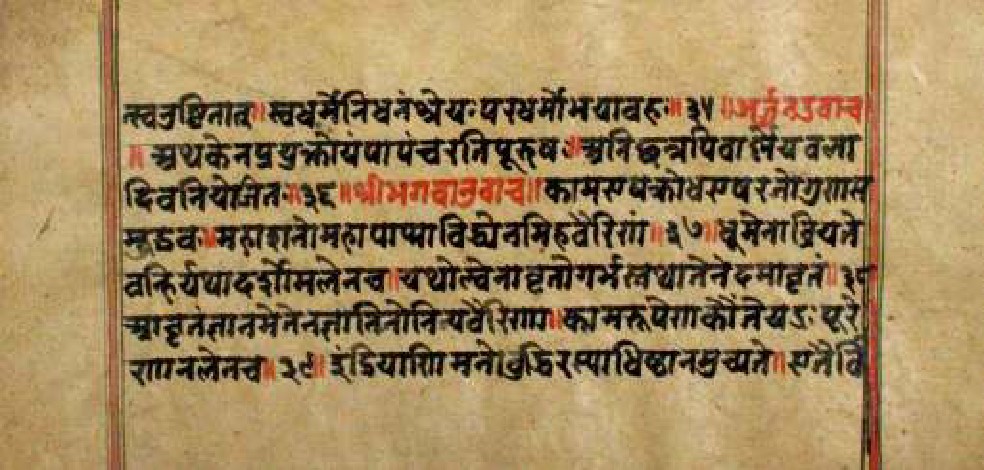 त्स्वनुष्ठितात् ॥ स्वधर्मेनिधनंश्रेयः परधर्मोभयावहः ॥ ३५ ॥ अर्जुनउवाच
॥ अथकेनप्रयुक्तोयंपापंचरतिपूरुषः ॥ अनिछन्नपिवार्ष्णेयवला
दिवनियोजितः ॥ ३६ ॥ श्रीभगवानुवाच ॥ कामएषक्रोधएषरजोगुणस
मुद्भवः ॥ महाशनोमहापाप्माविद्ध्येनमिहवैरिणं ॥ ३७ ॥ धूमेनाव्रियते
वह्निर्यथादर्शोमलेनच ॥ यथोल्वेनावृतोगर्भस्तथातेनेदमावृतं ॥ ३८
आवृतंज्ञानमेतेनज्ञानिनोनित्यवैरिणा ॥ कामरूपेणकौंतेयदुःपूरे
णानलेनच ॥ ३९ ॥ इंद्रियाणिमनोवुद्धिरस्याधिष्ठानमुच्यते ॥ एतैर्वि